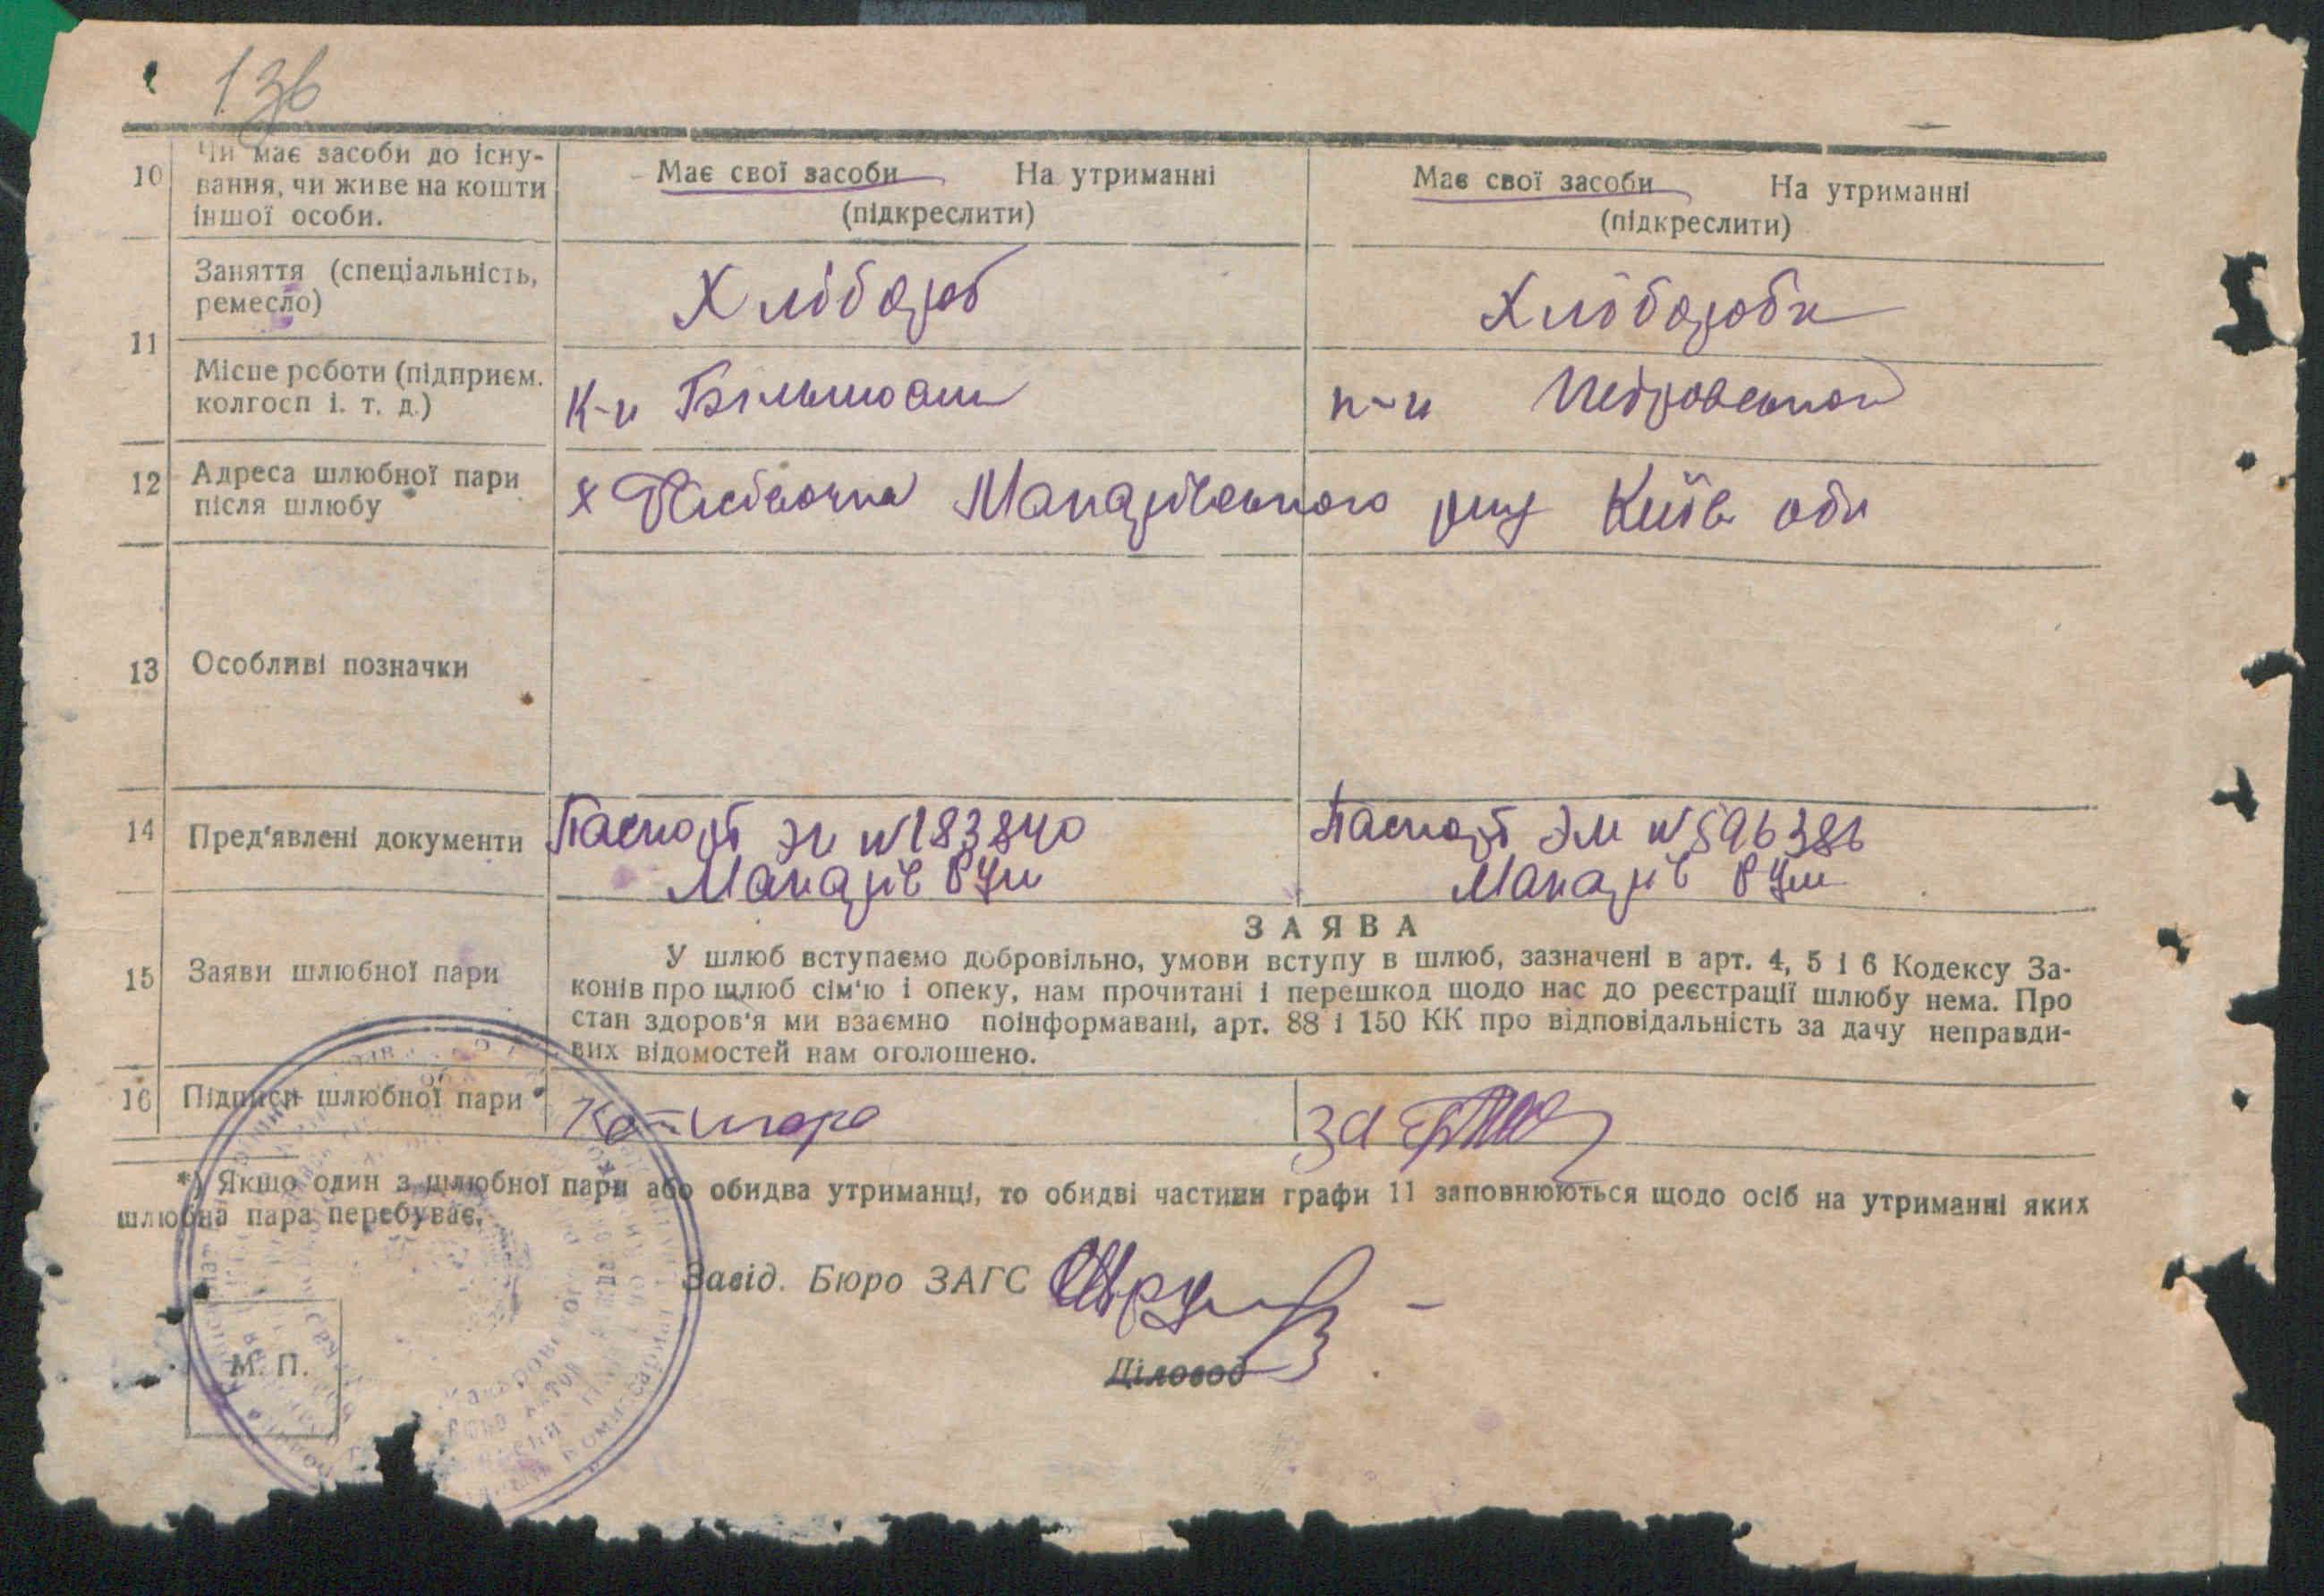 136
10 Чи має засоби до існу-
вання, чи живе на кошти
іншої особи.
Має свої засоби На утриманні
(підкреслити)
Має свої засоби На утриманні
(підкреслити)
11
Заняття (спеціальність,
ремесло)
Хлібороб
Хліборобка
Місце роботи (підприєм.
колгосп і. т. д.)
к-п Більшовик
к-п Петровського
12 Адреса шлюбної пари
після шлюбу
х Макарівського р-ну Київ обл
13 Особливі позначки
14 Пред'явлені документи
Паспорт ЭМ №183840
Макарів
Паспорт ЭМ №596386
Макарів
15 Заяви шлюбної пари
ЗАЯВА
У шлюб вступаємо добровільно, умови вступу в шлюб, зазначені в арт. 4, 5 і 6 Кодексу За-
конів про шлюб сім'ю і опеку, нам прочитані і перешкод щодо нас до реєстрації шлюбу нема. Про
стан здоров'я ми взаємно поінформавані, арт. 88 і 150 КК про відповідальність за дачу неправди-
вих відомостей нам оголошено.
16 Підписи шлюбної пари
за
*) Якщо один з шлюбної пари або обидва утриманці, то обидві частини графи 11 заповнюються щодо осіб на утриманні яких
шлюбна пара перебуває.
Завід. Бюро ЗАГС
Діловод
М. П.